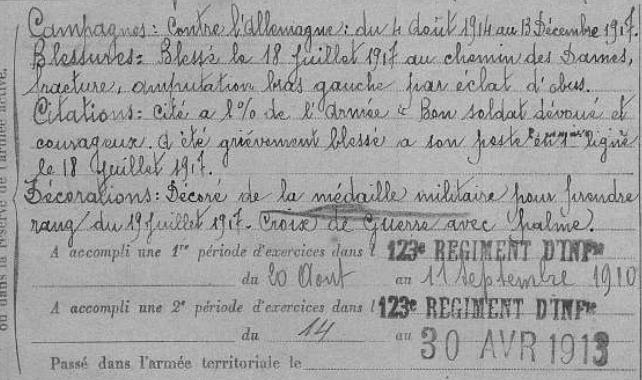 Campagnes: Contre l'Allemagne: du 4 Août 1914 au 13 Décembre 1917.
Blessures: Blessé le 18 Juillet 1917 au chemin des Dames,
fracture, amputation bras gauche par éclat d'obus.
Citations: cité a l'O/ de l'Armée "Bon soldat dévoué et
courageux. A été grièvement blessé a son poste en 1ère ligne
le 18 Juillet 1917.
Décorations: Décoré de la médaille militaire pour prendre
rang du 19 Juillet 1917. Croix de Guerre avec palme.
A accompli une 1re période d'exercices dans l 123e REGIMENT D'INFie
du 20 Aout au 11 Septembre 1910
A accompli une 2e période d'exercices dans l 123e REGIMENT D'INFie
du 14 au 30 AVR 1913
Passé dans l'armée territoriale le
ou dans la réserve de l'armée active.